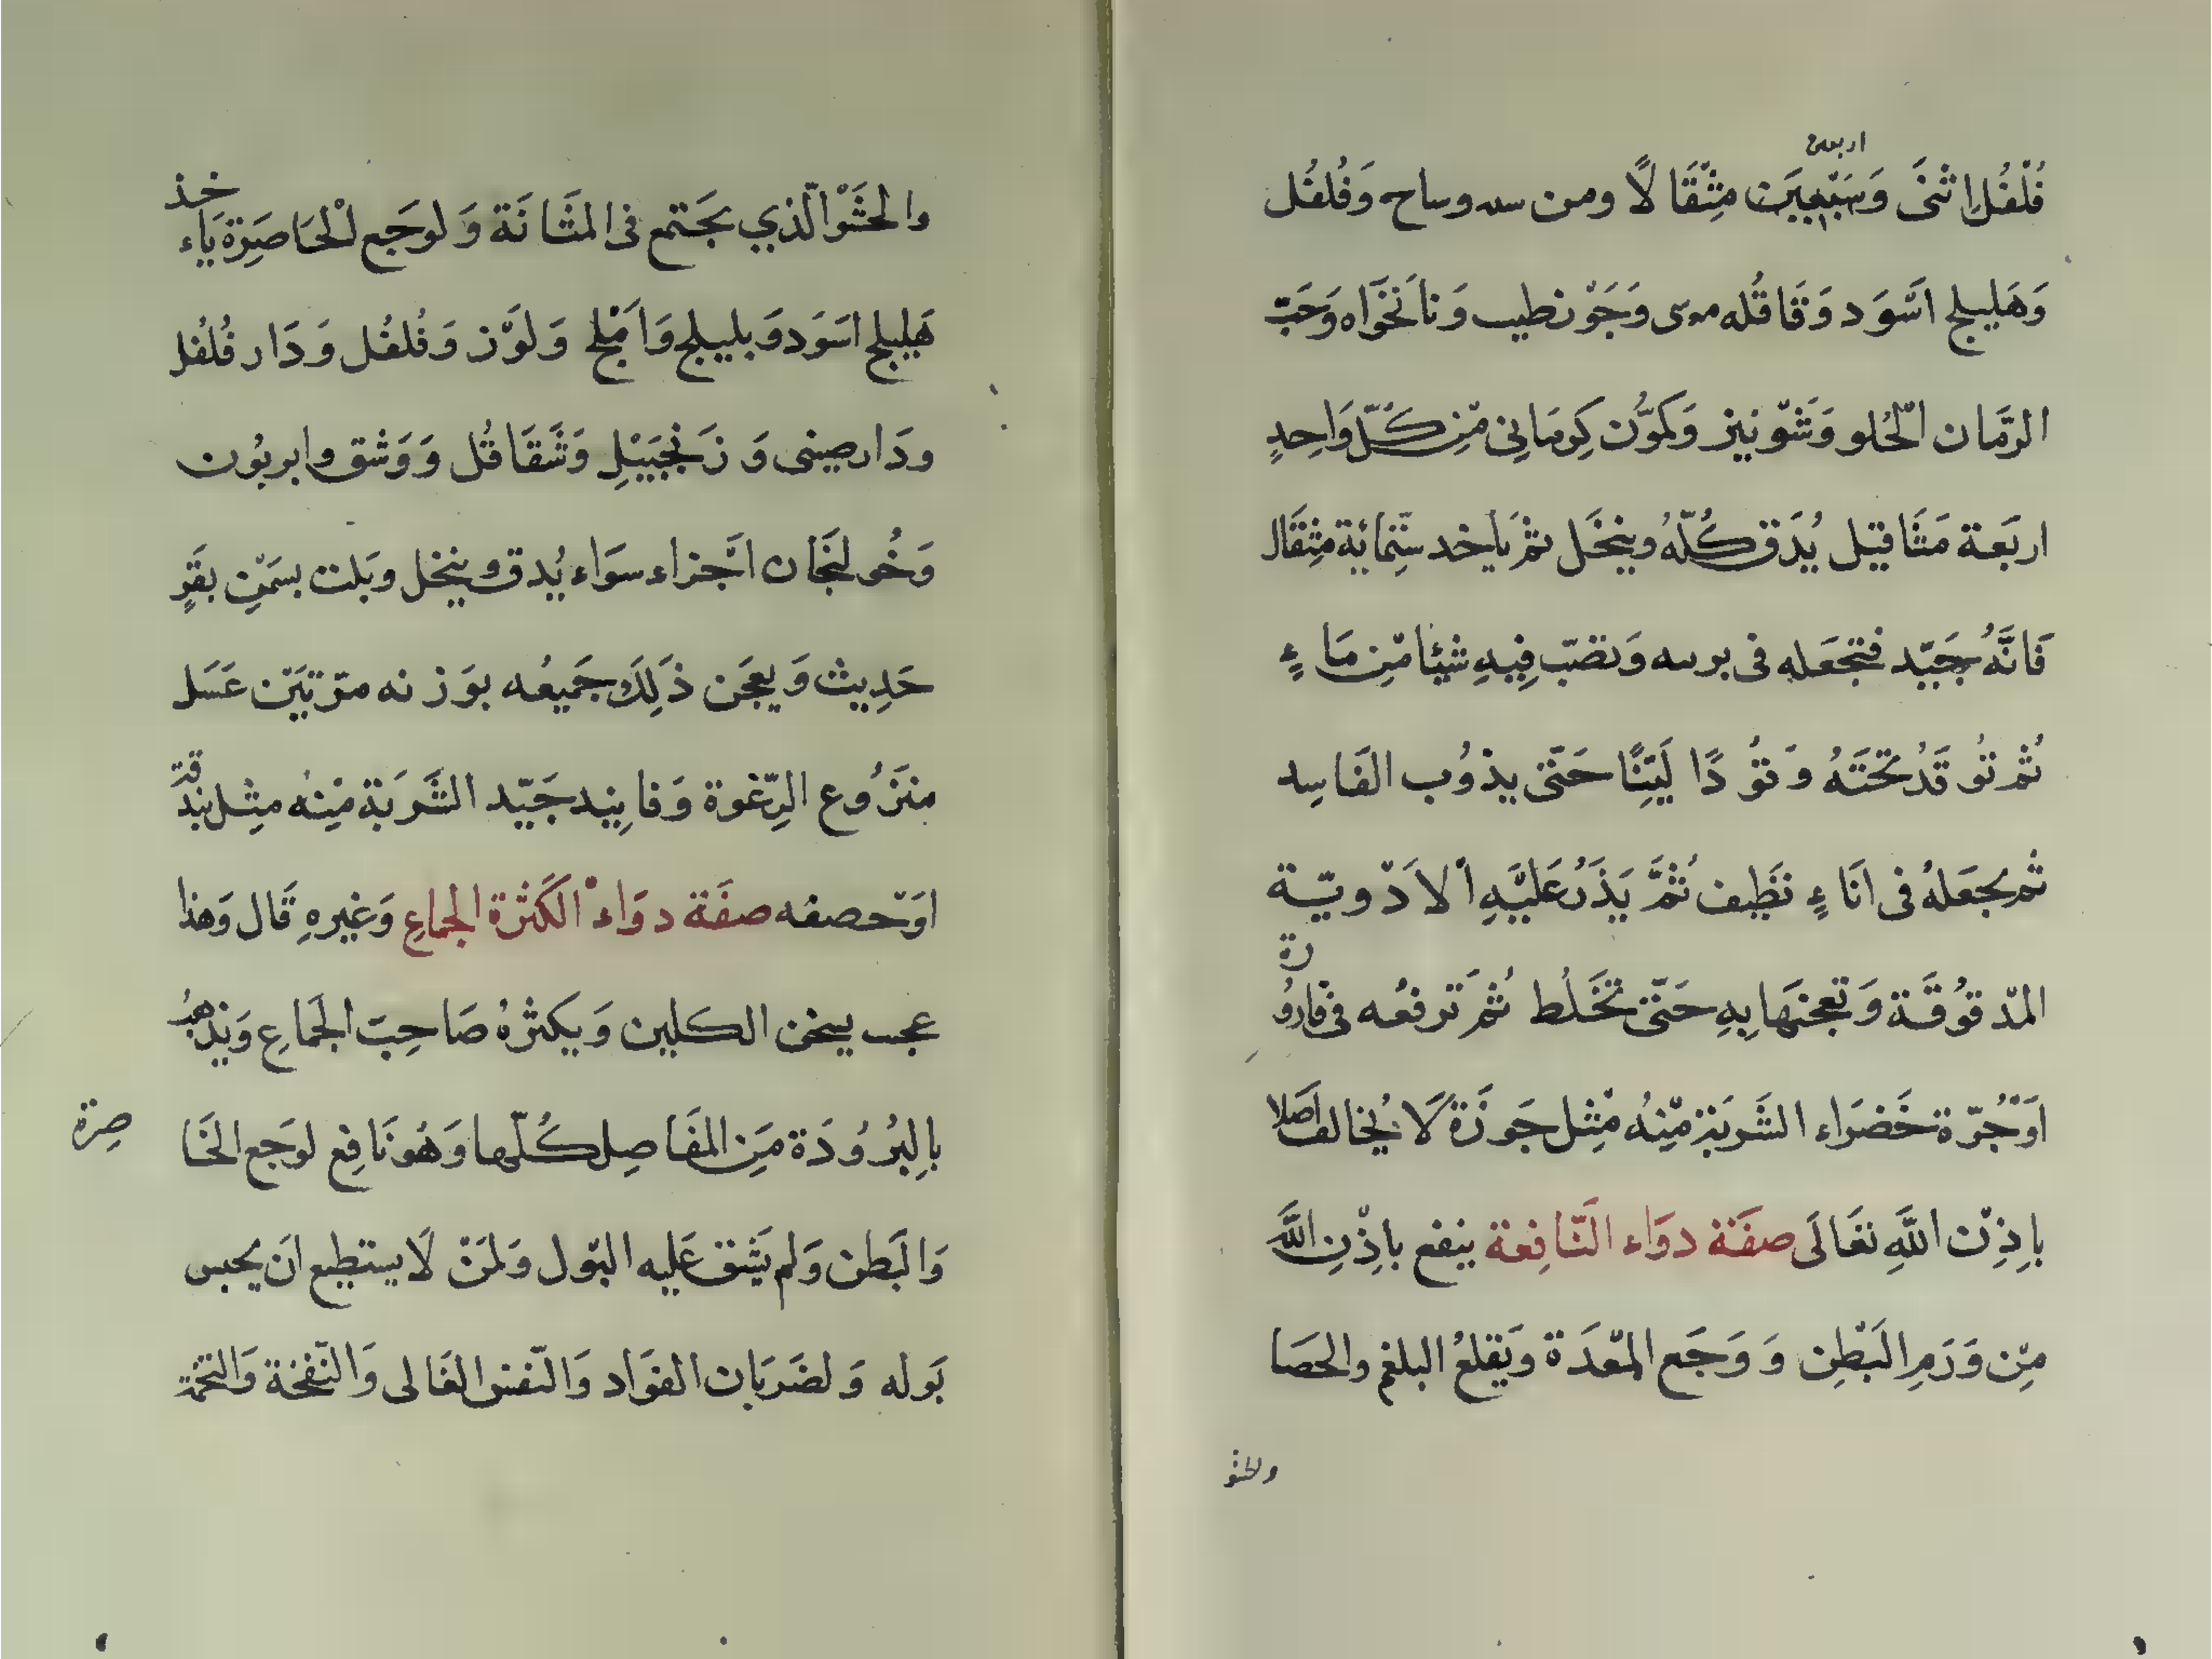 اربعين
فُلْفُل اثنَى وَسَبْعِينَ مِثْقَالًا ومن وساح وَفُلفُل
وَهَليلج اسْوَد وَقَاقُله موسى وَجَوْنطيب وَنانَخَواه وَحَبّ
الرَّمان الحُلو وَشَوْنيز وَكَمَوُّن كِرمَانِى مّن كُلّ وَاحِدٍ
اربَعة مَثَاقيل يُدَق كُلّهُ وينخَل ثمْ يَاخد سّتِمائة مِثقَال
فَانَّهُ جَيّد فتجعَله فى وَتصَبّ فِيهِ شيْئا مّن مَاءٍ
ثُم تُوقَدُ تحْتَهُ وَقُودًا لَيّنًا حَتّى يذوُب الفَاسِد
ثُم يجعَلهُ فى انَاءٍ نظِيف ثُمَّ يَذَرُ عَليْهِ الْادْويّة
المدْقوُقَة وَتعِجنهَا بِهِ حَتّى تخَلُط ثُمَ تَرفعُه فى قارُو
رة
اوَجُرّة خَضرَاء الشَربَة مّنِهُ مِّثِل جَوزَة لَا يُخالف اصَلا
بِاِذِن اللَّهِ تعَالَى صفَة دوَاء النّافِعة ينفع باِذْنِ اللَّه
مِّن وَرَمِ البَطِن وَوَجَع المّعَدَة وَيَقِلعُ البلغم والحصَا
والحشو
والحَشْوا لّذي يجَتمع فى المثَانَة وَلوَجَع الْحَاصَرِة يَاء
خذ
هَليلج اسوَد وَبليلج وَامْلج وَلوَّز وَفُلفُل وَدَار فُلفُل
ودَارصينى وَزَنجَبَيْلِ وَشَقَاقُل وَوَشْق وابربُون
وَخُولنجَان اجْزاء سوَاء يُدق وينخل وبَلت بسَمّنِ بقَرٍ
حَدِيث وَيعجَن ذَلِكَ جَميعُه بوَزنه مرّتيَن عَسَل
منزَوُع الرّغوة وَفانِيد جَيّد الشَربَة مّنِهُ مثِل بندُ
قة
اوَتحصفه صفَة دوَاء الْكَثرَة الجماعِ وَغيرهِ قَال وَهذا
عجب يسخن الكليين وَيكثرُهُ صَاحِبَ الجَمَاعِ وَيَذهبُ
بِالبُرُودَة مِنَ المفَاصِل كُلّها وَهُوَنَافِع لوَجَع الخَا
صِرة
وَالبَطن وَلم يَشق عَليه البَول وَلمَنْ لَا يستطيع انَ يحبس
بَوله وَلضَرَبَان الفوَاد وَالنّفس العَالى وَالنَّفخة وَالتخمة